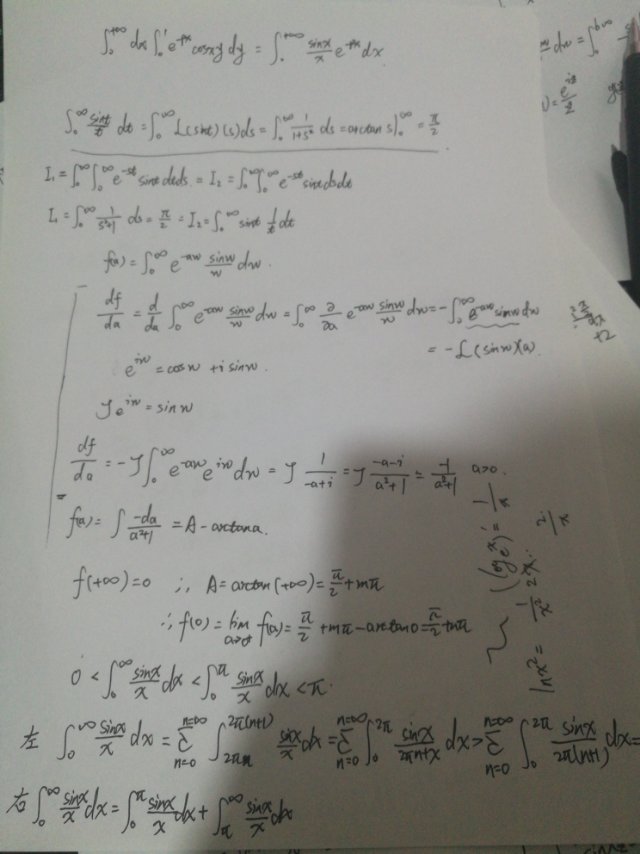 ∫₀^{+∞} dx ∫₀^1 e^{-px} cosxy dy = ∫₀^{+∞} sinx/x e^{-px} dx
∫₀^∞ sint/t dt = ∫₀^∞ L(sint)(s) ds = ∫₀^∞ 1/(1+s²) ds = arctan s|₀^∞ = π/2
I₁ = ∫₀^∞ ∫₀^∞ e^{-st} sint dt ds = I₂ = ∫₀^∞ ∫₀^∞ e^{-st} sint ds dt
I₁ = ∫₀^∞ 1/(s²+1) ds = π/2 = I₂ = ∫₀^∞ sint 1/t dt
f(a) = ∫₀^∞ e^{-aw} sinw/w dw.
df/da = d/da ∫₀^∞ e^{-aw} sinw/w dw = ∫₀^∞ ∂/∂a e^{-aw} sinw/w dw = -∫₀^∞ e^{-aw} sinw dw
= -L(sinw)(a)
e^{iw} = cosw + i sinw.
J e^{iw} = sinw
df/da = -J ∫₀^∞ e^{-aw} e^{iw} dw = J 1/(-a+i) = J (-a-i)/(a²+1) = -1/(a²+1) a>0.
f(a) = ∫ -da/(a²+1) = A - arctana.
f(+∞)=0 ∴ A = arctan(+∞) = π/2 + mπ
∴ f(0) = lim_{a→0⁺} f(a) = π/2 + mπ - arctan0 = π/2 + mπ
0 < ∫₀^∞ sinx/x dx < ∫₀^π sinx/x dx < π.
左 ∫₀^∞ sinx/x dx = Σ_{n=0}^{n=∞} ∫_{2πn}^{2π(n+1)} sinx/x dx = Σ_{n=0}^{n=∞} ∫₀^{2π} sinx/(2πn+x) dx > Σ_{n=0}^{n=∞} ∫₀^{2π} sinx/(2π(n+1)) dx =
右 ∫₀^∞ sinx/x dx = ∫₀^π sinx/x dx + ∫_π^∞ sinx/x dx
lnx² = 1/x² 2x = 2/x